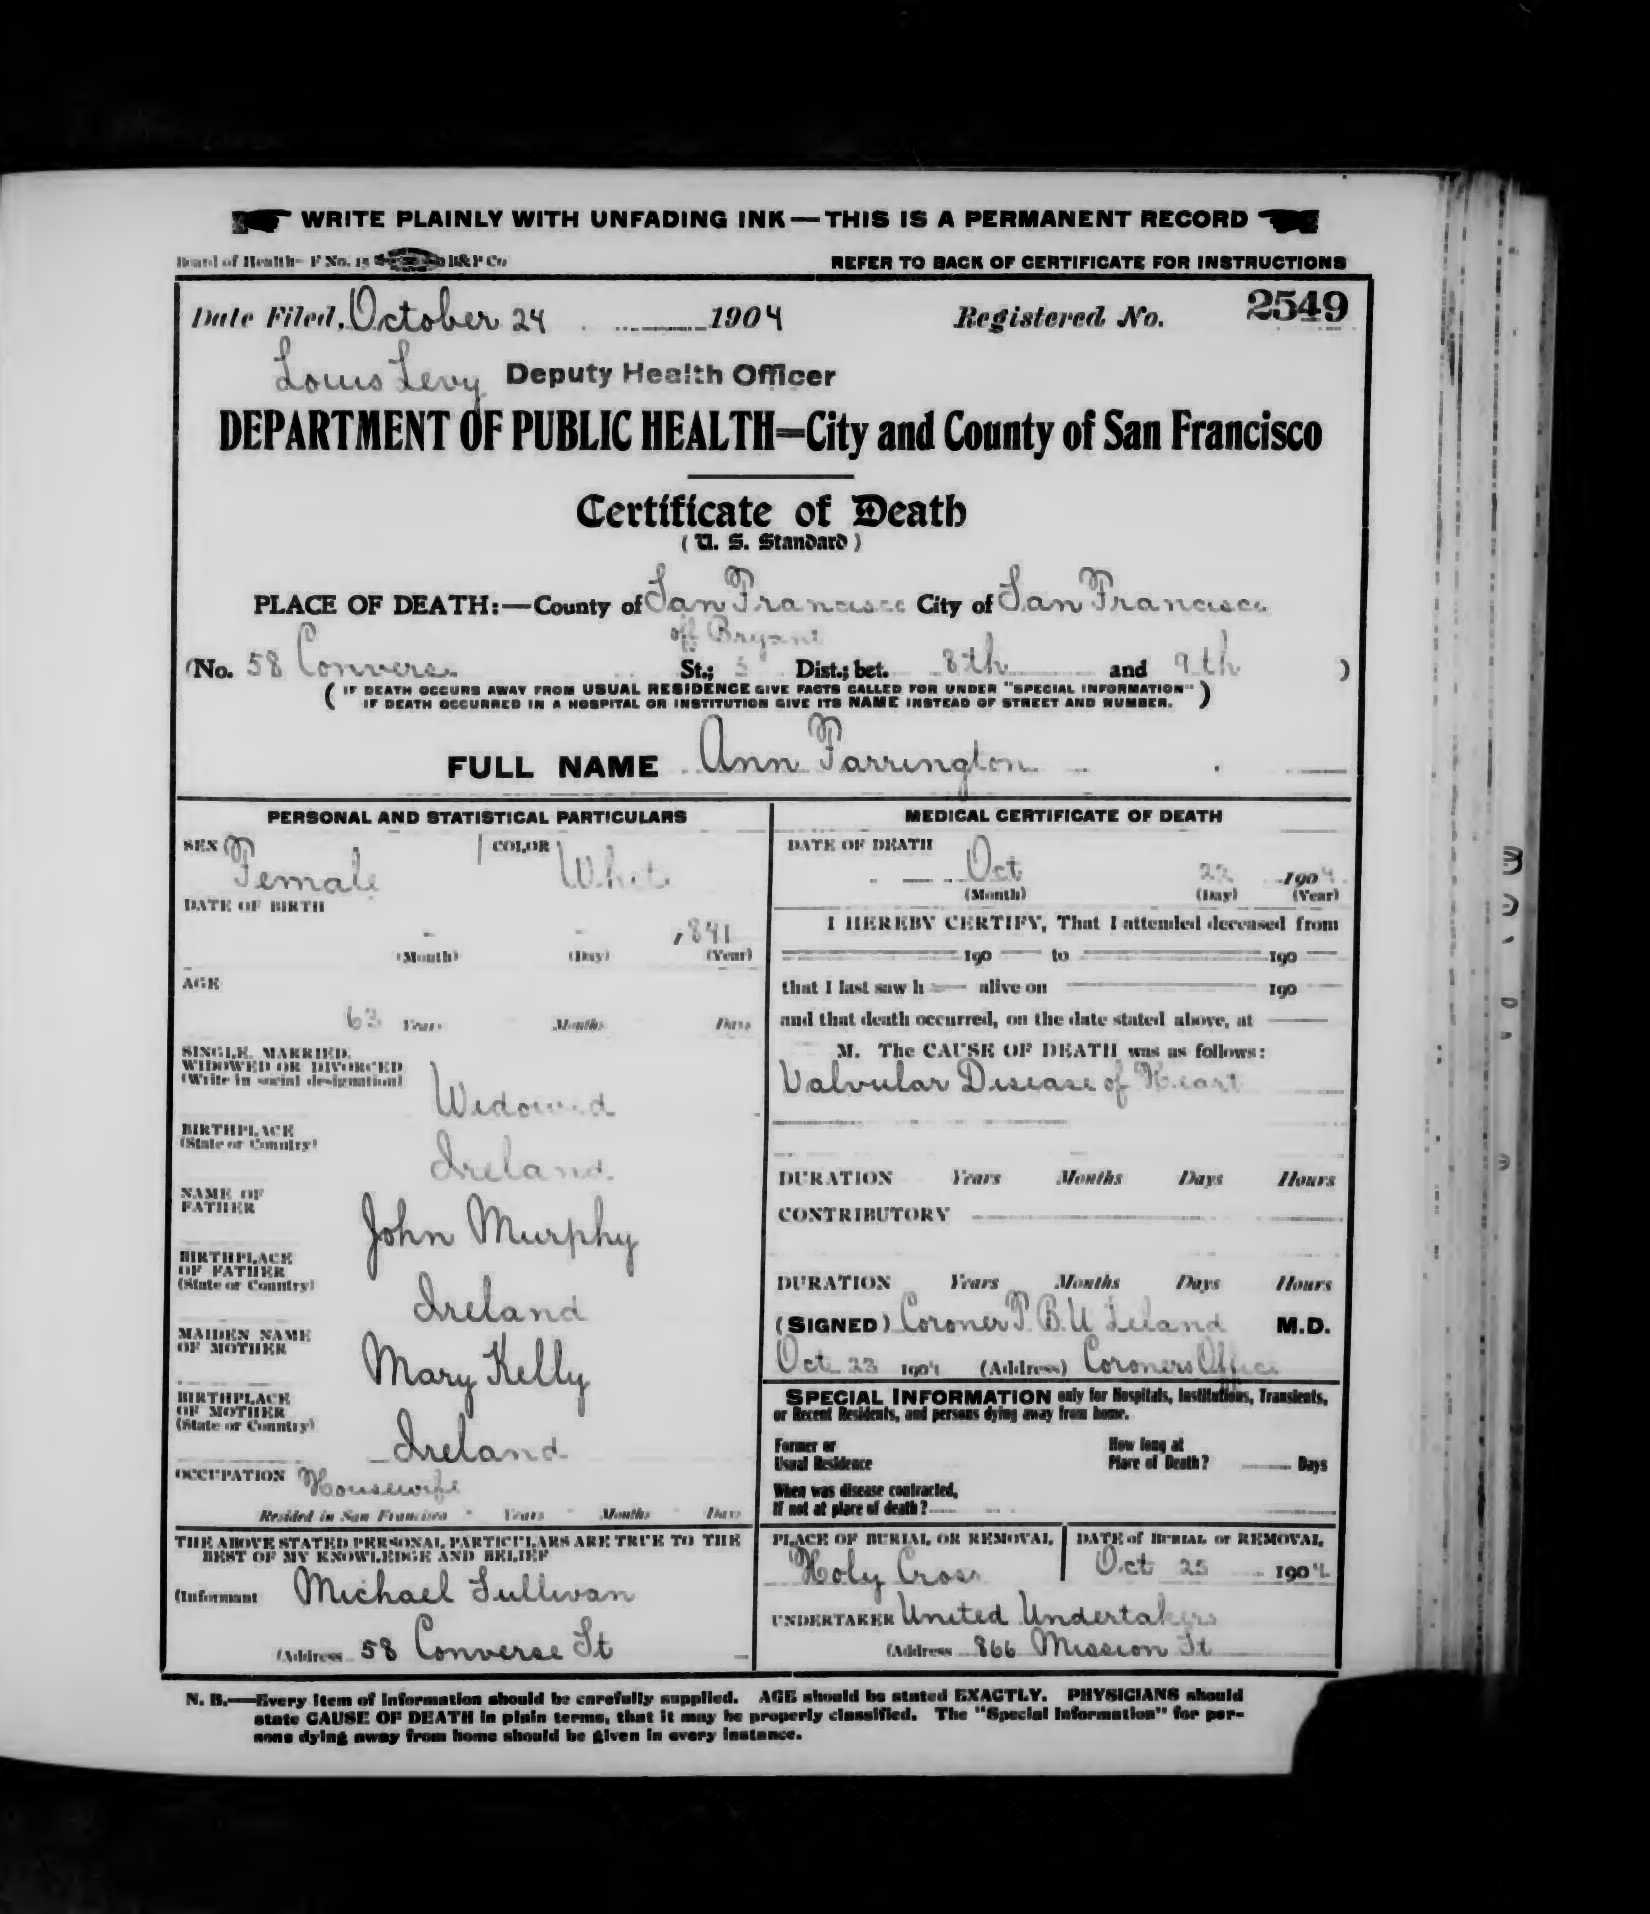 WRITE PLAINLY WITH UNFADING INK—THIS IS A PERMANENT RECORD
Board of Health—F No. 15 B&P Co
REFER TO BACK OF CERTIFICATE FOR INSTRUCTIONS
Date Filed, October 24 1904 Registered No. 2549
Louis Levy Deputy Health Officer
DEPARTMENT OF PUBLIC HEALTH—City and County of San Francisco
Certificate of Death
(U. S. Standard)
PLACE OF DEATH:—County of San Francisco City of San Francisco
off Bryant
(No. 58 Converse St.; 5 Dist.; bet. 8th and 9th )
( IF DEATH OCCURS AWAY FROM USUAL RESIDENCE GIVE FACTS CALLED FOR UNDER "SPECIAL INFORMATION" )
( IF DEATH OCCURRED IN A HOSPITAL OR INSTITUTION GIVE ITS NAME INSTEAD OF STREET AND NUMBER. )
FULL NAME Ann Farrington
PERSONAL AND STATISTICAL PARTICULARS
SEX Female COLOR White
DATE OF BIRTH
1841
(Month) (Day) (Year)
AGE
63 Years Months Days
SINGLE, MARRIED,
WIDOWED OR DIVORCED
(Write in social designation)
Widowed
BIRTHPLACE
(State or Country)
Ireland
NAME OF
FATHER
John Murphy
BIRTHPLACE
OF FATHER
(State or Country)
Ireland
MAIDEN NAME
OF MOTHER
Mary Kelly
BIRTHPLACE
OF MOTHER
(State or Country)
Ireland
OCCUPATION Housewife
Resided in San Francisco Years Months Days
THE ABOVE STATED PERSONAL PARTICULARS ARE TRUE TO THE
BEST OF MY KNOWLEDGE AND BELIEF
(Informant Michael Sullivan
(Address 58 Converse St
MEDICAL CERTIFICATE OF DEATH
DATE OF DEATH
Oct 22 1904
(Month) (Day) (Year)
I HEREBY CERTIFY, That I attended deceased from
190 to 190
that I last saw h alive on 190
and that death occurred, on the date stated above, at
M. The CAUSE OF DEATH was as follows:
Valvular Disease of Heart
DURATION Years Months Days Hours
CONTRIBUTORY
DURATION Years Months Days Hours
(SIGNED) Coroner T. B. W Leland M.D.
Oct 23 1904 (Address) Coroners Office
SPECIAL INFORMATION only for Hospitals, Institutions, Transients,
or Recent Residents, and persons dying away from home.
Former or
Usual Residence
How long at
Place of Death? Days
When was disease contracted,
If not at place of death?
PLACE OF BURIAL OR REMOVAL
Holy Cross
DATE of BURIAL or REMOVAL
Oct 25 1904
UNDERTAKER United Undertakers
(Address 866 Mission St
N. B.—Every item of information should be carefully supplied. AGE should be stated EXACTLY. PHYSICIANS should
state CAUSE OF DEATH in plain terms, that it may be properly classified. The "Special Information" for per-
sons dying away from home should be given in every instance.